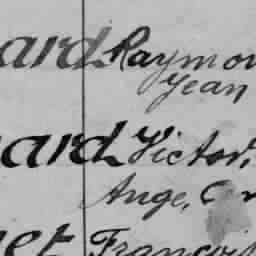 ard Raymon
Jean
ard Victor,
Ange, C
et François